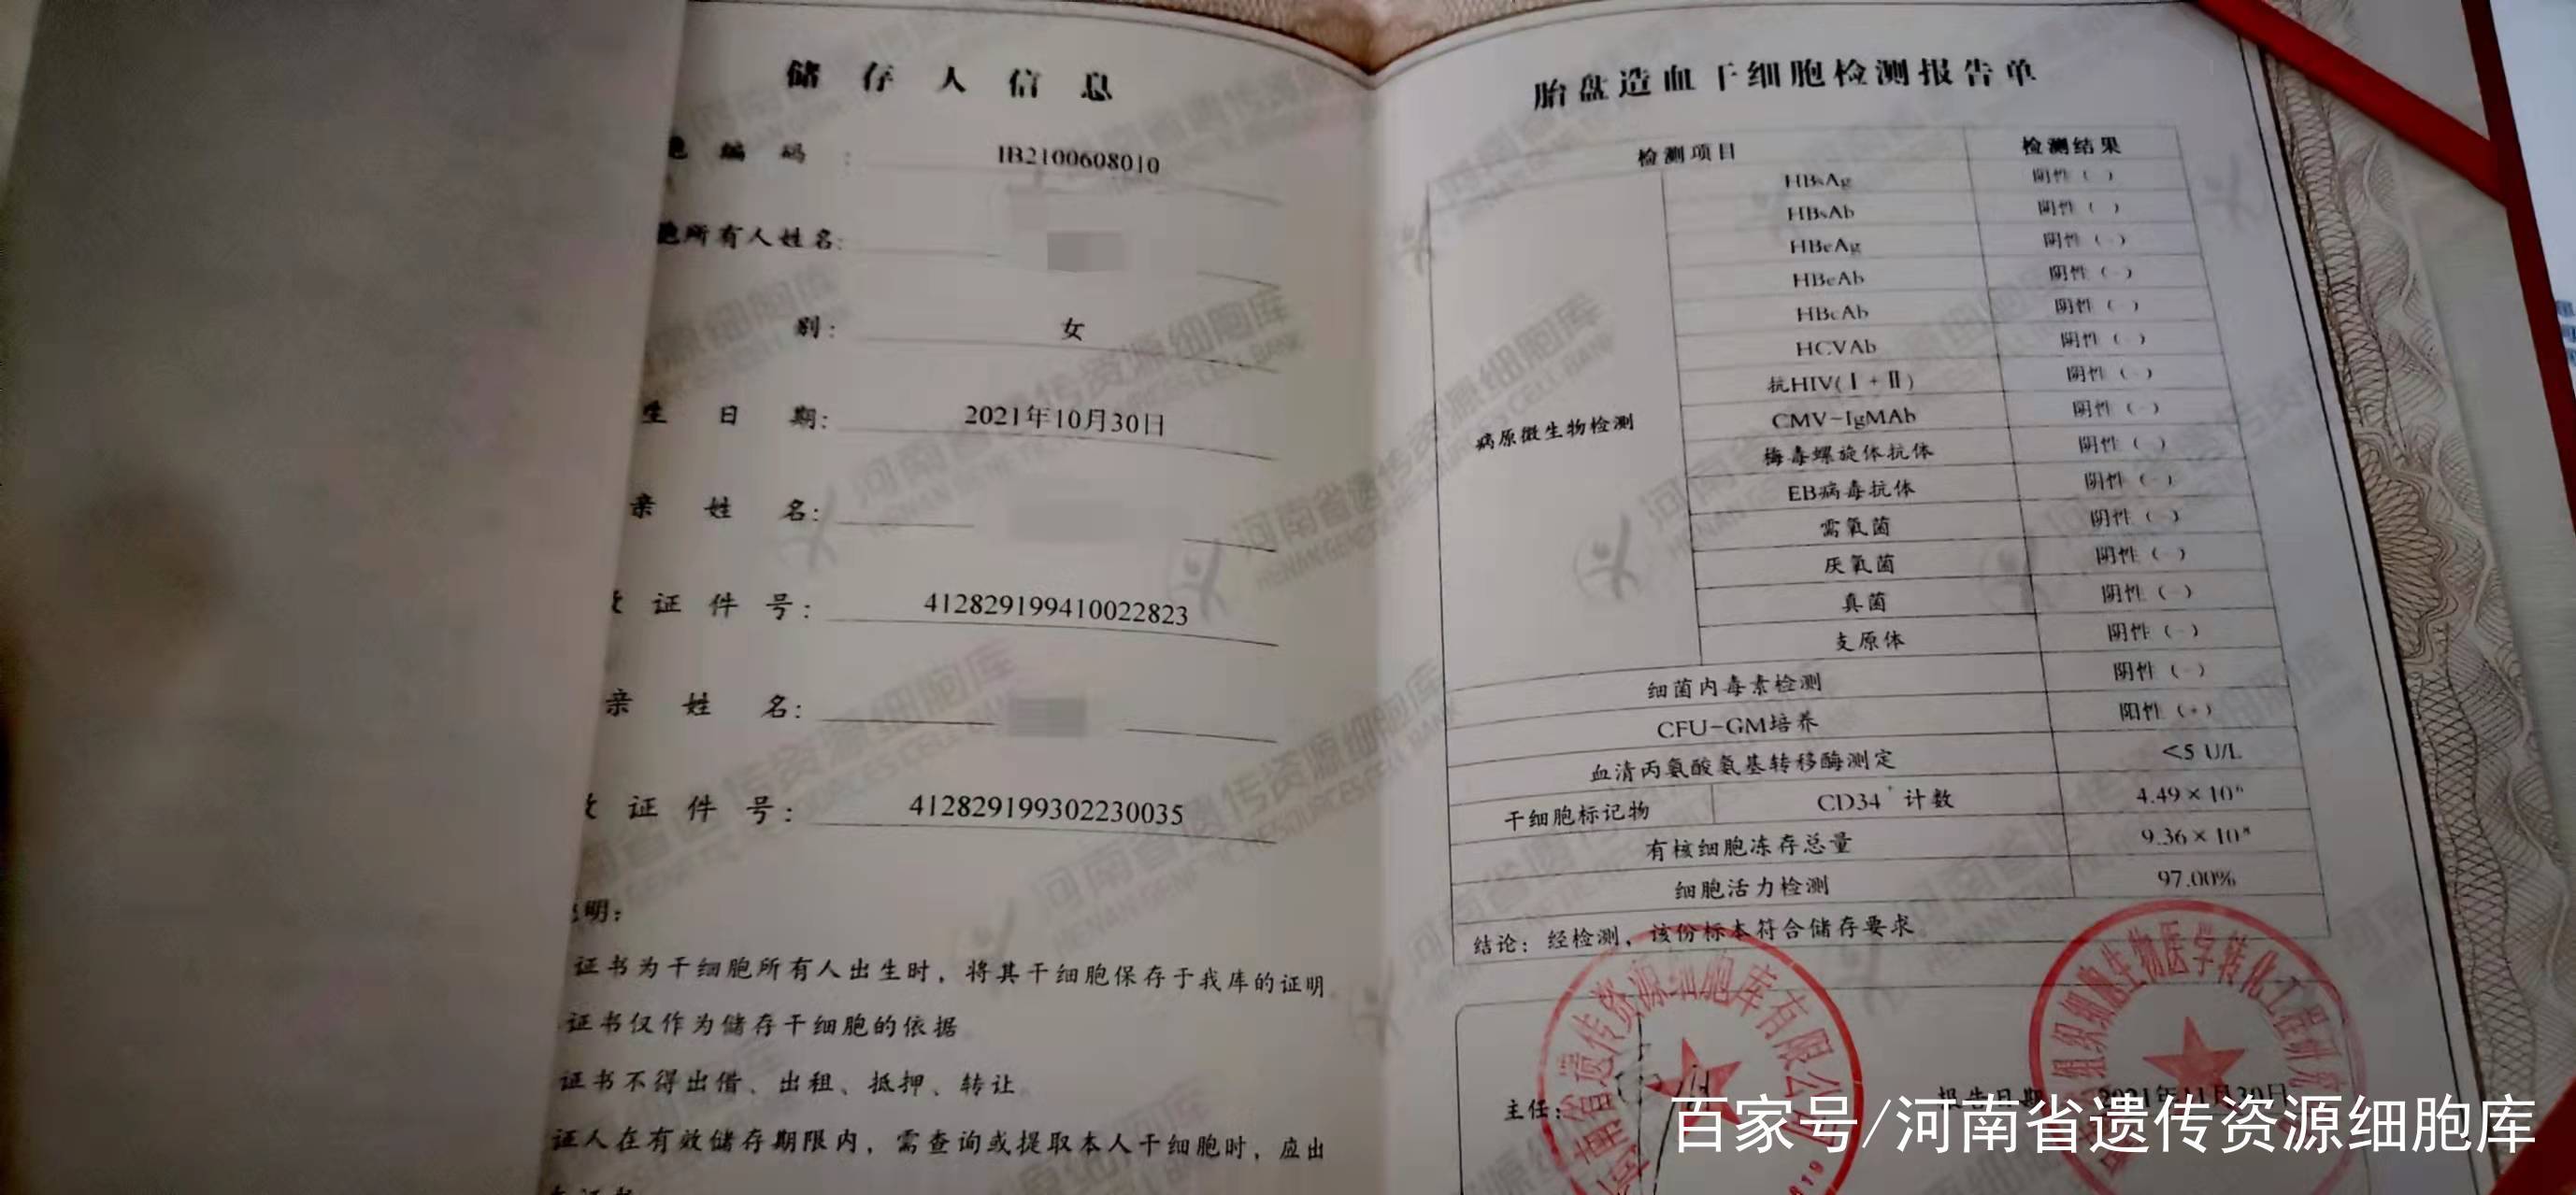 储存人信息
编码： IB2100608010
胞所有人姓名：
别： 女
生日期： 2021年10月30日
亲姓名：
证件号： 412829199410022823
亲姓名：
证件号： 412829199302230035
明：
证书为干细胞所有人出生时，将其干细胞保存于我库的证明
证书仅作为储存干细胞的依据
证书不得出借、出租、抵押、转让
证人在有效储存期限内，需查询或提取本人干细胞时，应出
胎盘造血干细胞检测报告单
检测项目 检测结果
病原微生物检测
HBsAg 阴性（-）
HBsAb 阴性（-）
HBeAg 阴性（-）
HBeAb 阴性（-）
HBcAb 阴性（-）
HCVAb 阴性（-）
抗HIV(Ⅰ+Ⅱ) 阴性（-）
CMV-IgMAb 阴性（-）
梅毒螺旋体抗体 阴性（-）
EB病毒抗体 阴性（-）
需氧菌 阴性（-）
厌氧菌 阴性（-）
真菌 阴性（-）
支原体 阴性（-）
细菌内毒素检测 阴性（-）
CFU-GM培养 阳性（+）
血清丙氨酸氨基转移酶测定 <5 U/L
干细胞标记物 CD34⁺计数 4.49×10⁶
有核细胞冻存总量 9.36×10⁸
细胞活力检测 97.00%
结论：经检测，该份标本符合储存要求
主任：
报告日期 2021年11月30日
南省遗传资源细胞库有限公
组织细胞生物医学转化工程研究
百家号/河南省遗传资源细胞库